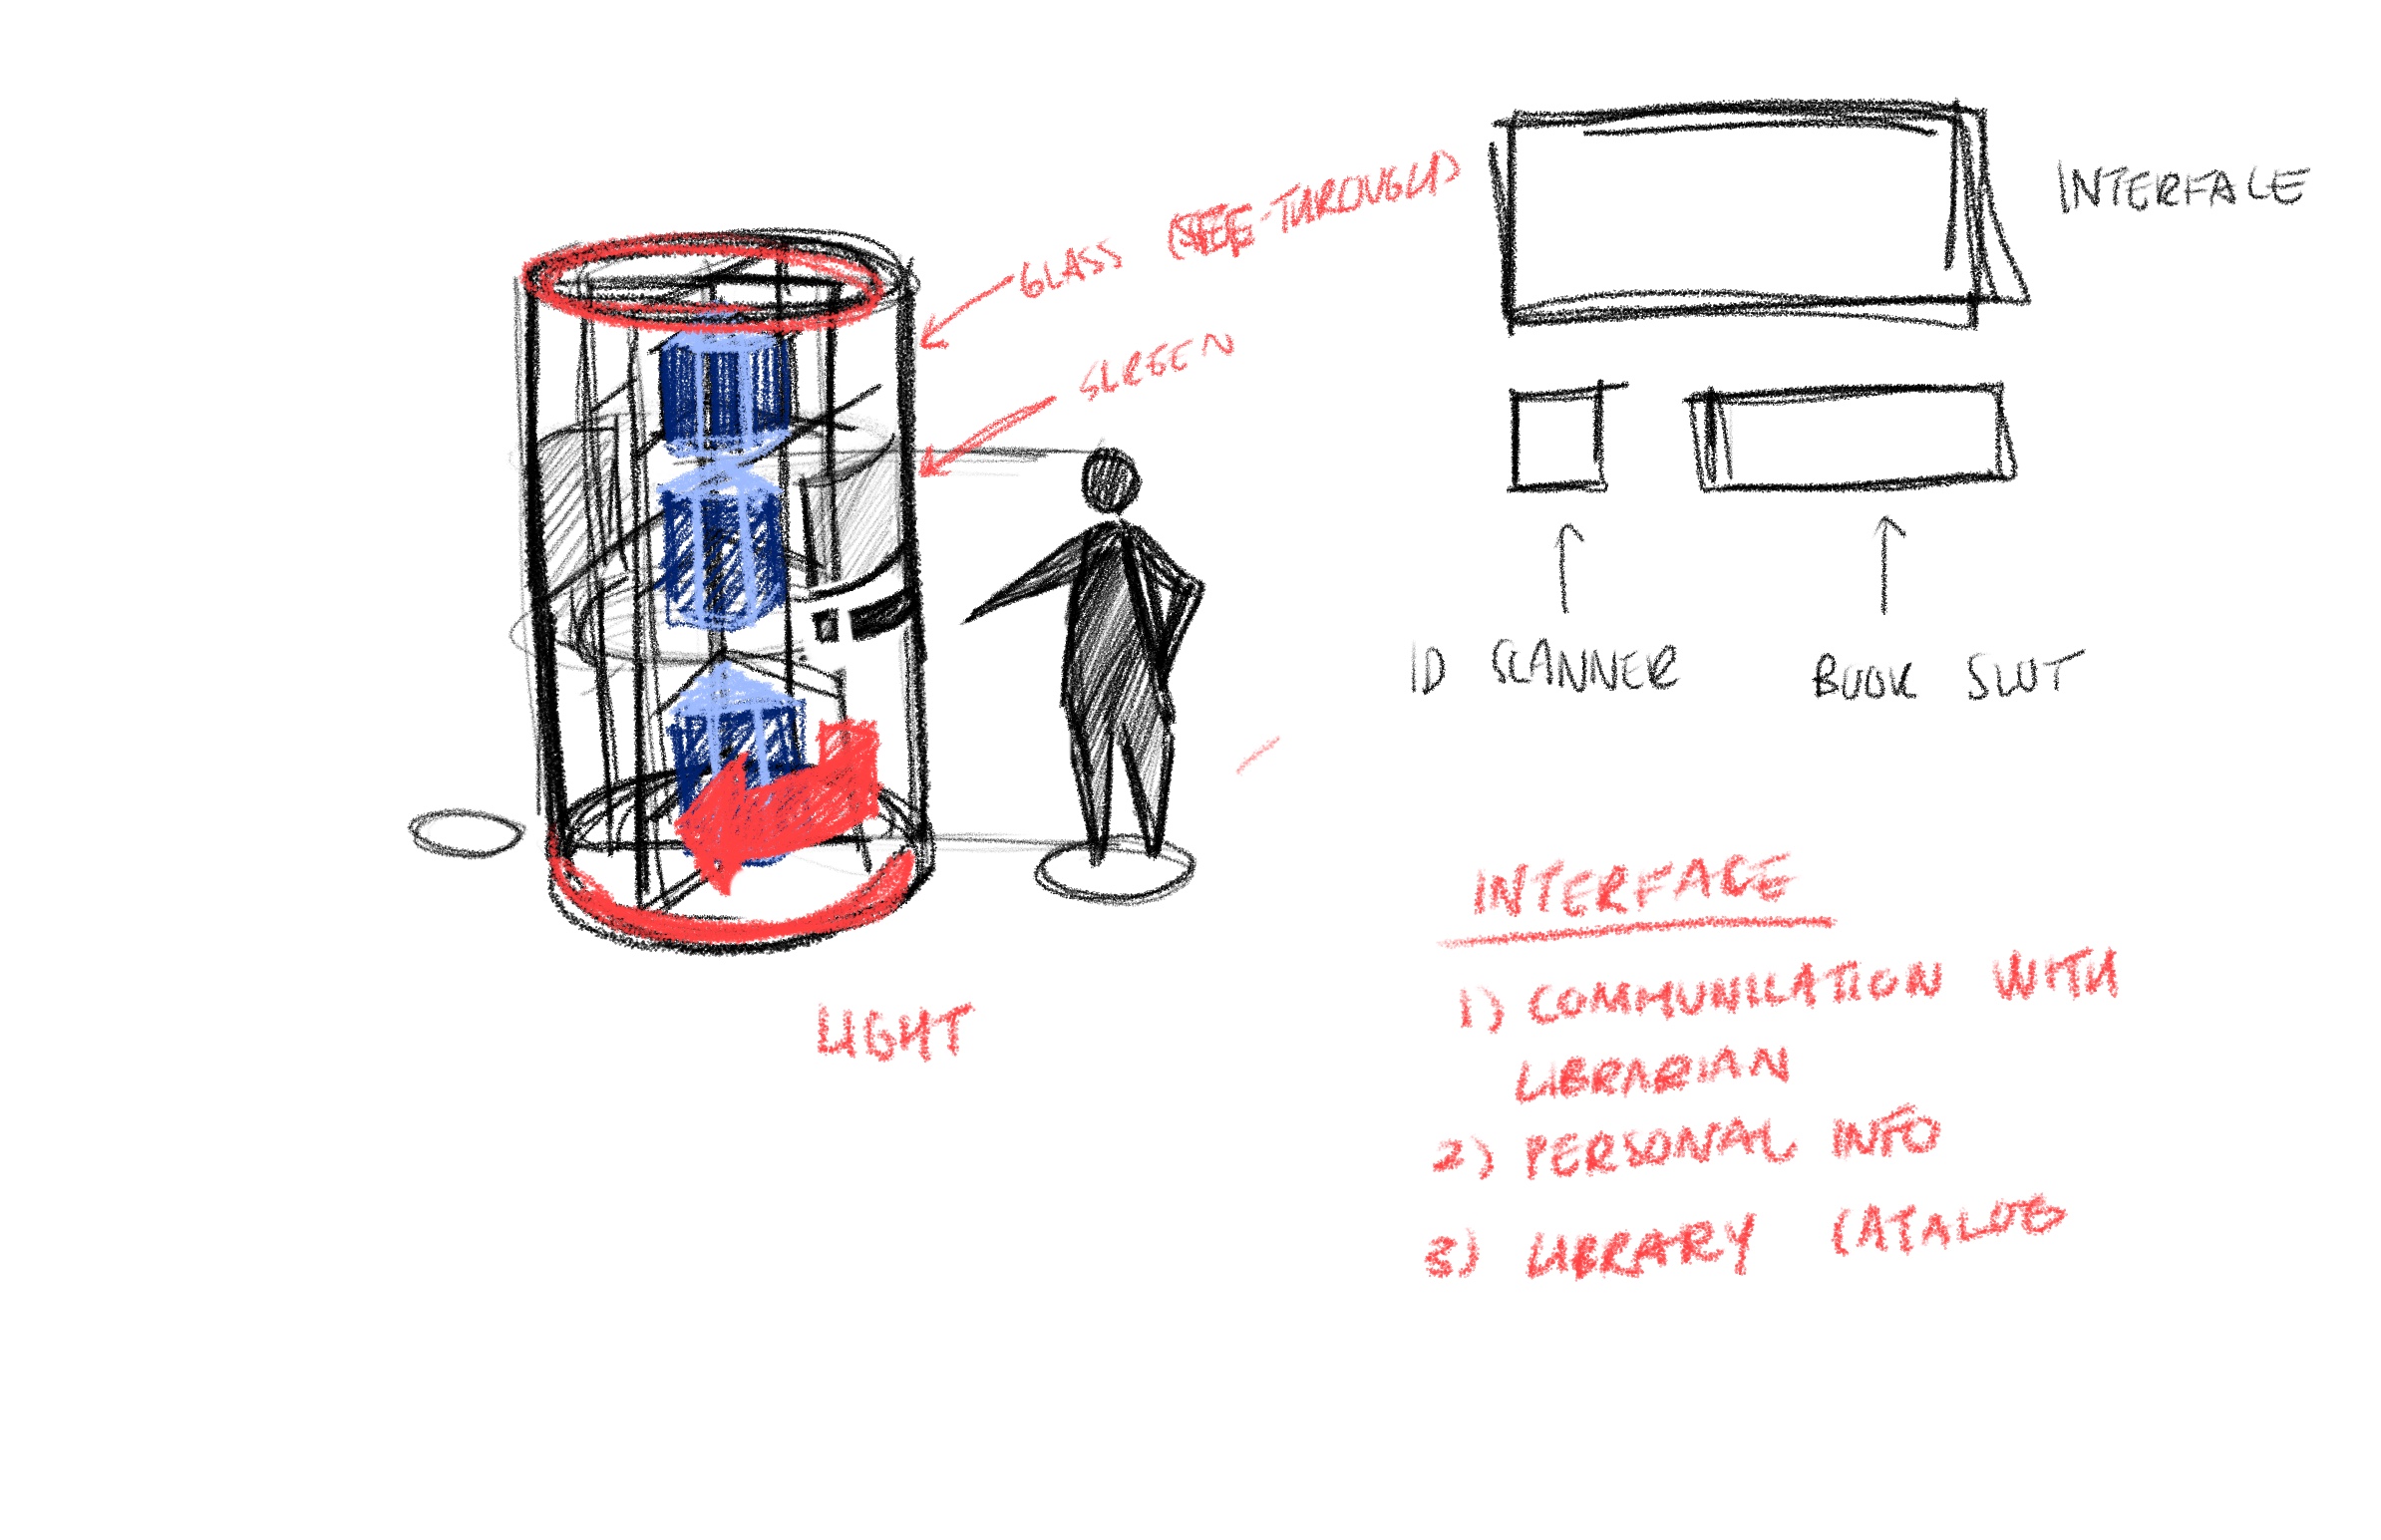 GLASS (SEE-THROUGH)
SCREEN
LIGHT
INTERFACE
ID SCANNER
BOOK SLOT
INTERFACE
1) COMMUNICATION WITH
LIBRARIAN
2) PERSONAL INFO
3) LIBRARY CATALOG